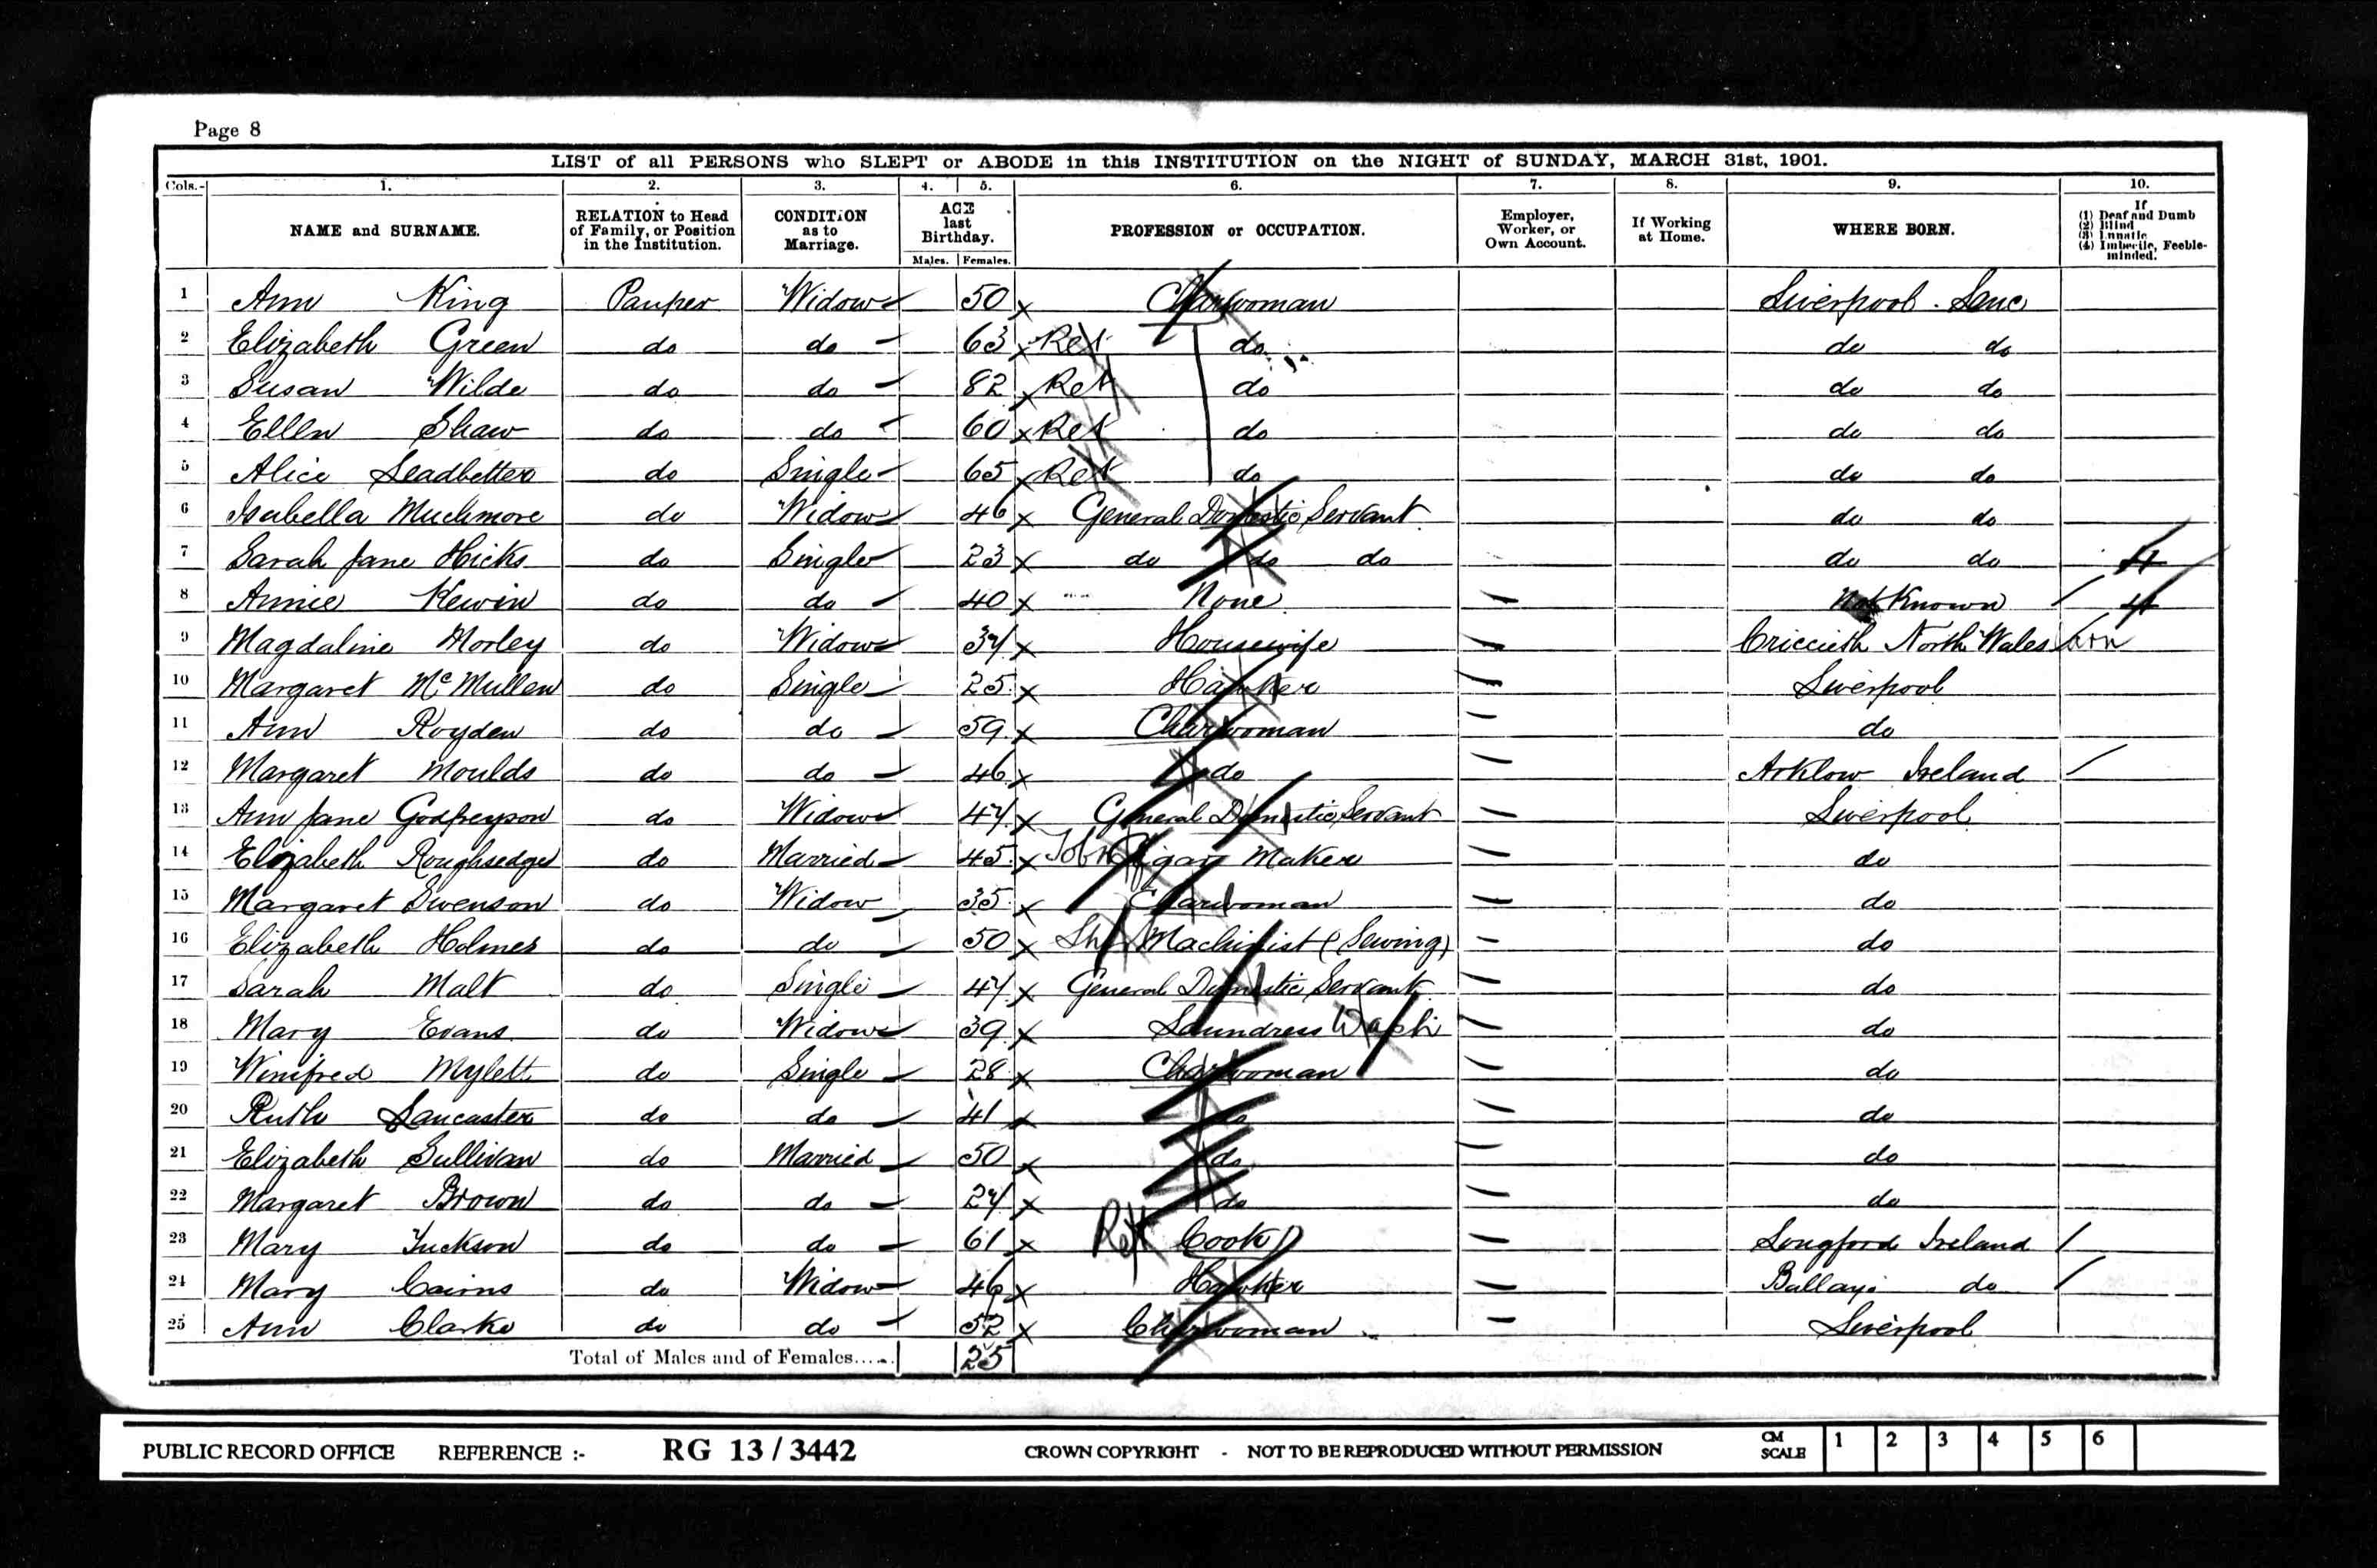 Page 8
LIST of all PERSONS who SLEPT or ABODE in this INSTITUTION on the NIGHT of SUNDAY, MARCH 31st, 1901.
Cols.- 1. 2. 3. 4. 5. 6. 7. 8. 9. 10.
NAME and SURNAME. RELATION to Head of Family, or Position in the Institution. CONDITION as to Marriage. AGE last Birthday. Males. Females. PROFESSION or OCCUPATION. Employer, Worker, or Own Account. If Working at Home. WHERE BORN. If (1) Deaf and Dumb (2) Blind (3) Lunatic (4) Imbecile, Feeble-minded.
1 Ann King Pauper Widow 50 x Charwoman Liverpool Lanc
2 Elizabeth Green do do 63 x Ret do do do
3 Susan Wilde do do 82 x Ret do do do
4 Ellen Shaw do do 60 x Ret do do do
5 Alice Leadbetter do Single 65 x Ret do do do
6 Isabella Muchmore do Widow 46 x General Domestic Servant do do
7 Sarah Jane Hicks do Single 23 x do do do do do 4
8 Annie Kewin do do 40 x None Not Known 4
9 Magdaline Morley do Widow 37 x Housewife Criccieth North Wales
10 Margaret McMullen do Single 25 x Hawker Liverpool
11 Ann Royden do do 59 x Charwoman do
12 Margaret Moulds do do 46 x do Arklow Ireland
13 Ann Jane Godfreyson do Widow 47 x General Domestic Servant Liverpool
14 Elizabeth Roughsedge do Married 45 x Cigar Maker do
15 Margaret Swenson do Widow 35 x Charwoman do
16 Elizabeth Holmes do do 50 x Machinist (Sewing) do
17 Sarah Malt do Single 47 x General Domestic Servant do
18 Mary Evans do Widow 39 x Laundress Wash do
19 Winifred Mylett do Single 28 x Charwoman do
20 Ruth Lancaster do do 41 x do do
21 Elizabeth Sullivan do Married 50 x do do
22 Margaret Brown do do 27 x do do
23 Mary Tuckson do do 61 x Ret Cook D Longford Ireland
24 Mary Cairns do Widow 46 x Hawker do
25 Ann Clarke do do 52 x Charwoman Liverpool
Total of Males and of Females...... 25
PUBLIC RECORD OFFICE REFERENCE :- RG 13 / 3442 CROWN COPYRIGHT - NOT TO BE REPRODUCED WITHOUT PERMISSION CM SCALE 1 2 3 4 5 6